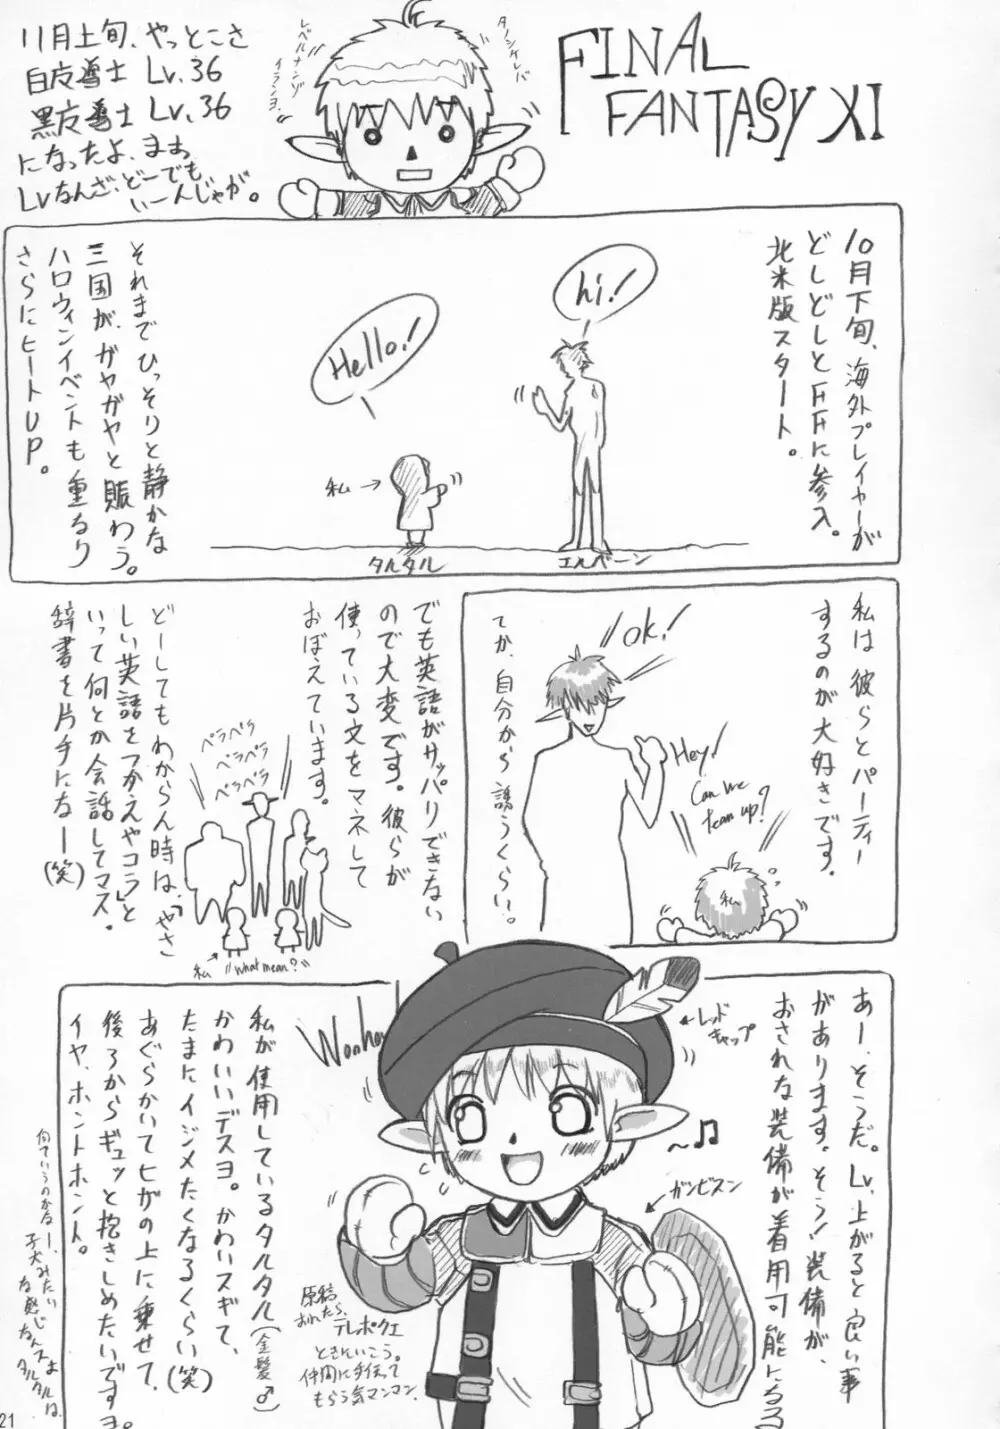 FINAL
FANTASY XI
11月上旬、やっとこさ
白友導士 Lv.36
黒友導士 Lv.36
になったよ、まぁ
Lvなんざ、どーでも
いーんじゃが。
タノシケレバ
レベルナンゾ
イランヨ
10月下旬、海外プレイヤーが
どしどしとFFに参入。
北米版スタート。
hi!
Hello!
私→
タルタル
エルバーン
それまでひっそりと静かな
三国が、ガヤガヤと賑わう。
ハロウィンイベントも重なり
さらにヒートUP。
私は彼らとパーティ
するのが大好きです。
OK!
Hey!
Can we
team up?
私
てか、自分から誘うくらい。
でも英語がサッパリできない
ので大変です。彼らが
使っている文をマネして
おぼえています。
どーしてもわからん時は、「やさ
しい英語をつかえやコラ」と
いって何とか会話してマス。
辞書を片手になー(笑)
ペラペラ
ペラペラ
ペラペラ
私
"What mean?"
あー、そうだ。Lv.上がると良い事
があります。そう!装備が、
おされな装備が着用可能になる
←レッド
キャップ
ガンビスン
私が使用しているタルタル(金髪♂)
かわいいデスヨ。かわいスギて、
たまにイジメたくなるくらい(笑)
あぐらかいてヒザの上に乗せて、
後ろからギュッと抱きしめたいですヨ。
イヤ、ホントホント。
何ていうのかなー、
子犬みたい
な感じなんスよ
タルタルは、
原稿
おわったら、
テレポクエ
ときにいこう。
仲間に手伝って
もらう気マンマン。
21